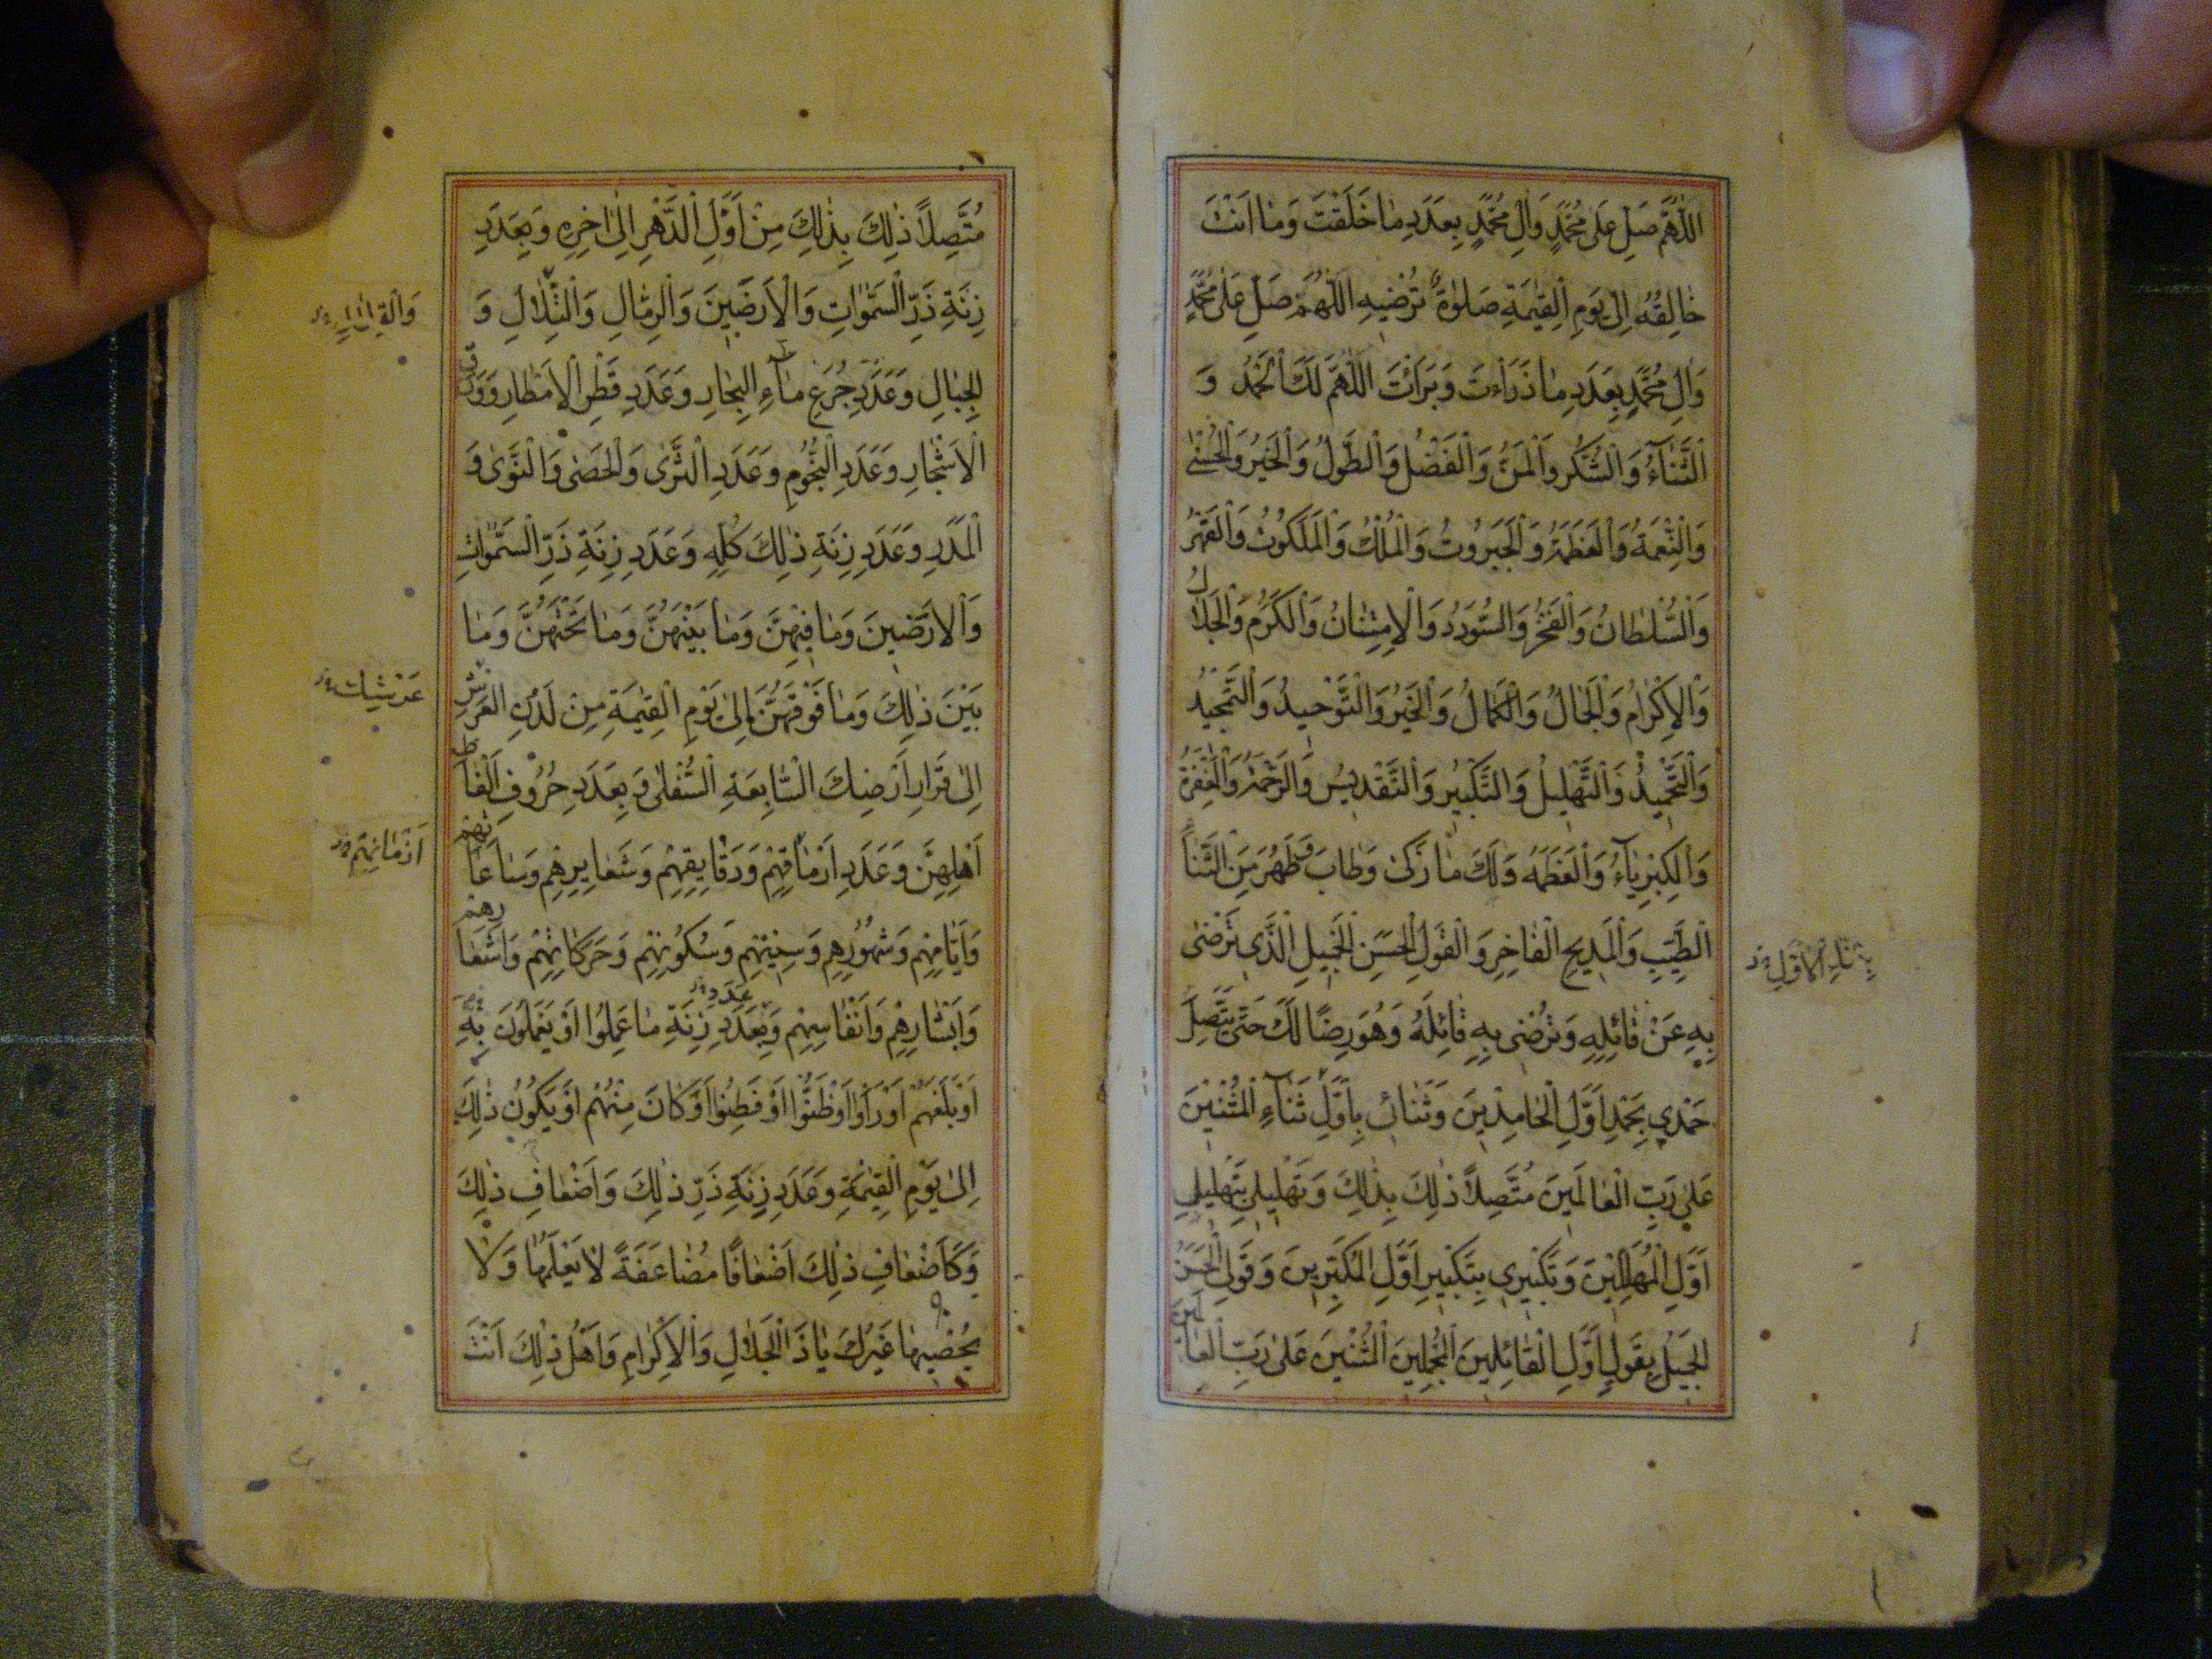 اَللّٰهُمَّ صَلِّ عَلٰى مُحَمَّدٍ وَاٰلِ مُحَمَّدٍ بِعَدَدِ مٰا خَلَقْتَ وَمٰا اَنْتَ
خٰالِقُهُ اِلٰى يَوْمِ الْقِيٰمَةِ صَلٰوةً تُرْضٖيهِ اَللّٰهُمَّ صَلِّ عَلٰى مُحَمَّدٍ
وَاٰلِ مُحَمَّدٍ بِعَدَدِ مٰا ذَرَأْتَ وَبَرَأْتَ اَللّٰهُمَّ لَكَ الْحَمْدُ وَ
الثَّنٰآءُ وَالشُّكْرُ وَالْمَنُّ وَالْفَضْلُ وَالطَّوْلُ وَالْخَيْرُ وَالْحُسْنٰى
وَالنِّعْمَةُ وَالْعَظَمَةُ وَالْجَبَرُوتُ وَالْمُلْكُ وَالْمَلَكُوتُ وَالْقَهْرُ
وَالسُّلْطٰانُ وَالْفَخْرُ وَالسُّودَدُ وَالْاِمْتِنٰانُ وَالْكَرَمُ وَالْجَلٰالُ
وَالْاِكْرٰامُ وَالْجَمٰالُ وَالْكَمٰالُ وَالْخَيْرُ وَالتَّوْحٖيدُ وَالتَّمْجٖيدُ
وَالتَّحْمٖيدُ وَالتَّهْلٖيلُ وَالتَّكْبٖيرُ وَالتَّقْدٖيسُ وَالرَّحْمَةُ وَالْمَغْفِرَةُ
وَالْكِبْرِيٰآءُ وَالْعَظَمَةُ وَلَكَ مٰا زَكٰى وَطٰابَ وَطَهُرَ مِنَ الثَّنٰآءِ
الطَّيِّبِ وَالْمَدٖيحِ الْفٰاخِرِ وَالْقَوْلِ الْحَسَنِ الْجَمٖيلِ الَّذٖي تَرْضٰى
بِهِ عَنْ قٰائِلِهِ وَتُرْضٖى بِهِ قٰائِلَهُ وَهُوَ رِضًا لَكَ حَتّٰى يَتَّصِلَ
حَمْدٖي بِحَمْدِ اَوَّلِ الْحٰامِدٖينَ وَثَنٰائٖ بِاَوَّلِ ثَنٰآءِ الْمُثْنٖينَ
عَلٰى رَبِّ الْعٰالَمٖينَ مُتَّصِلاً ذٰلِكَ بِذٰلِكَ وَتَهْلٖيلٖي بِتَهْلٖيلِ
اَوَّلِ الْمُهَلِّلٖينَ وَتَكْبٖيرٖي بِتَكْبٖيرِ اَوَّلِ الْمُكَبِّرٖينَ وَقَوْلِيَ الْحَسَنُ
الْجَمٖيلُ بِقَوْلِ اَوَّلِ الْقٰائِلٖينَ الْمُجْمِلٖينَ الْمُثْنٖينَ عَلٰى رَبِّ الْعٰالَمٖينَ
مُتَّصِلاً ذٰلِكَ بِذٰلِكَ مِنْ اَوَّلِ الدَّهْرِ اِلٰى اٰخِرِهِ وَبِعَدَدِ
زِنَةِ ذَرِّ السَّمٰوٰاتِ وَالْاَرَضٖينَ وَالرِّمٰالِ وَالتِّلٰالِ وَ
الْجِبٰالِ وَعَدَدِ جُرَعِ مٰآءِ الْبِحٰارِ وَعَدَدِ قَطْرِ الْاَمْطٰارِ وَوَرَقِ
الْاَشْجٰارِ وَعَدَدِ النُّجُومِ وَعَدَدِ الثَّرٰى وَالْحَصٰى وَالنَّوٰى وَ
الْمَدَرِ وَعَدَدِ زِنَةِ ذٰلِكَ كُلِّهِ وَعَدَدِ زِنَةِ ذَرِّ السَّمٰوٰاتِ
وَالْاَرَضٖينَ وَمٰا فٖيهِنَّ وَمٰا بَيْنَهُنَّ وَمٰا تَحْتَهُنَّ وَمٰا
بَيْنَ ذٰلِكَ وَمٰا فَوْقَهُنَّ اِلٰى يَوْمِ الْقِيٰمَةِ مِنْ لَدُنِ الْعَرْشِ
اِلٰى قَرٰارِ اَرْضِكَ السّٰابِعَةِ السُّفْلٰى وَبِعَدَدِ حُرُوفِ اَلْفٰاظِ
اَهْلِهِنَّ وَعَدَدِ اَرْمٰاقِهِمْ وَدَقٰايِقِهِمْ وَشَعٰايِرِهِمْ وَسٰاعٰاتِهِمْ
اَزْمٰانِهِمْ
وَاَيّٰامِهِمْ وَشُهُورِهِمْ وَسِنٖينِهِمْ وَسُكُونِهِمْ وَحَرَكٰاتِهِمْ وَاَشْعٰارِهِمْ
وَاَبْشٰارِهِمْ وَاَنْفٰاسِهِمْ وَبِعَدَدِ زِنَةِ مٰا عَمِلُوا اَوْ يَعْمَلُونَ بِهِ
عَدَدِ
اَوْ بَلَغَهُمْ اَوْ رَاَوْا اَوْ ظَنُّوا اَوْ فَطِنُوا اَوْ كٰانَ مِنْهُمْ اَوْ يَكُونُ ذٰلِكَ
اِلٰى يَوْمِ الْقِيٰمَةِ وَعَدَدِ زِنَةِ ذَرِّ ذٰلِكَ وَاَضْعٰافِ ذٰلِكَ
وَكَاَضْعٰافِ ذٰلِكَ اَضْعٰافًا مُضٰاعَفَةً لٰا يَعْلَمُهٰا وَلٰا
يُحْصٖيهٰا غَيْرُكَ يٰا ذَا الْجَلٰالِ وَالْاِكْرٰامِ وَاَهْلُ ذٰلِكَ اَنْتَ